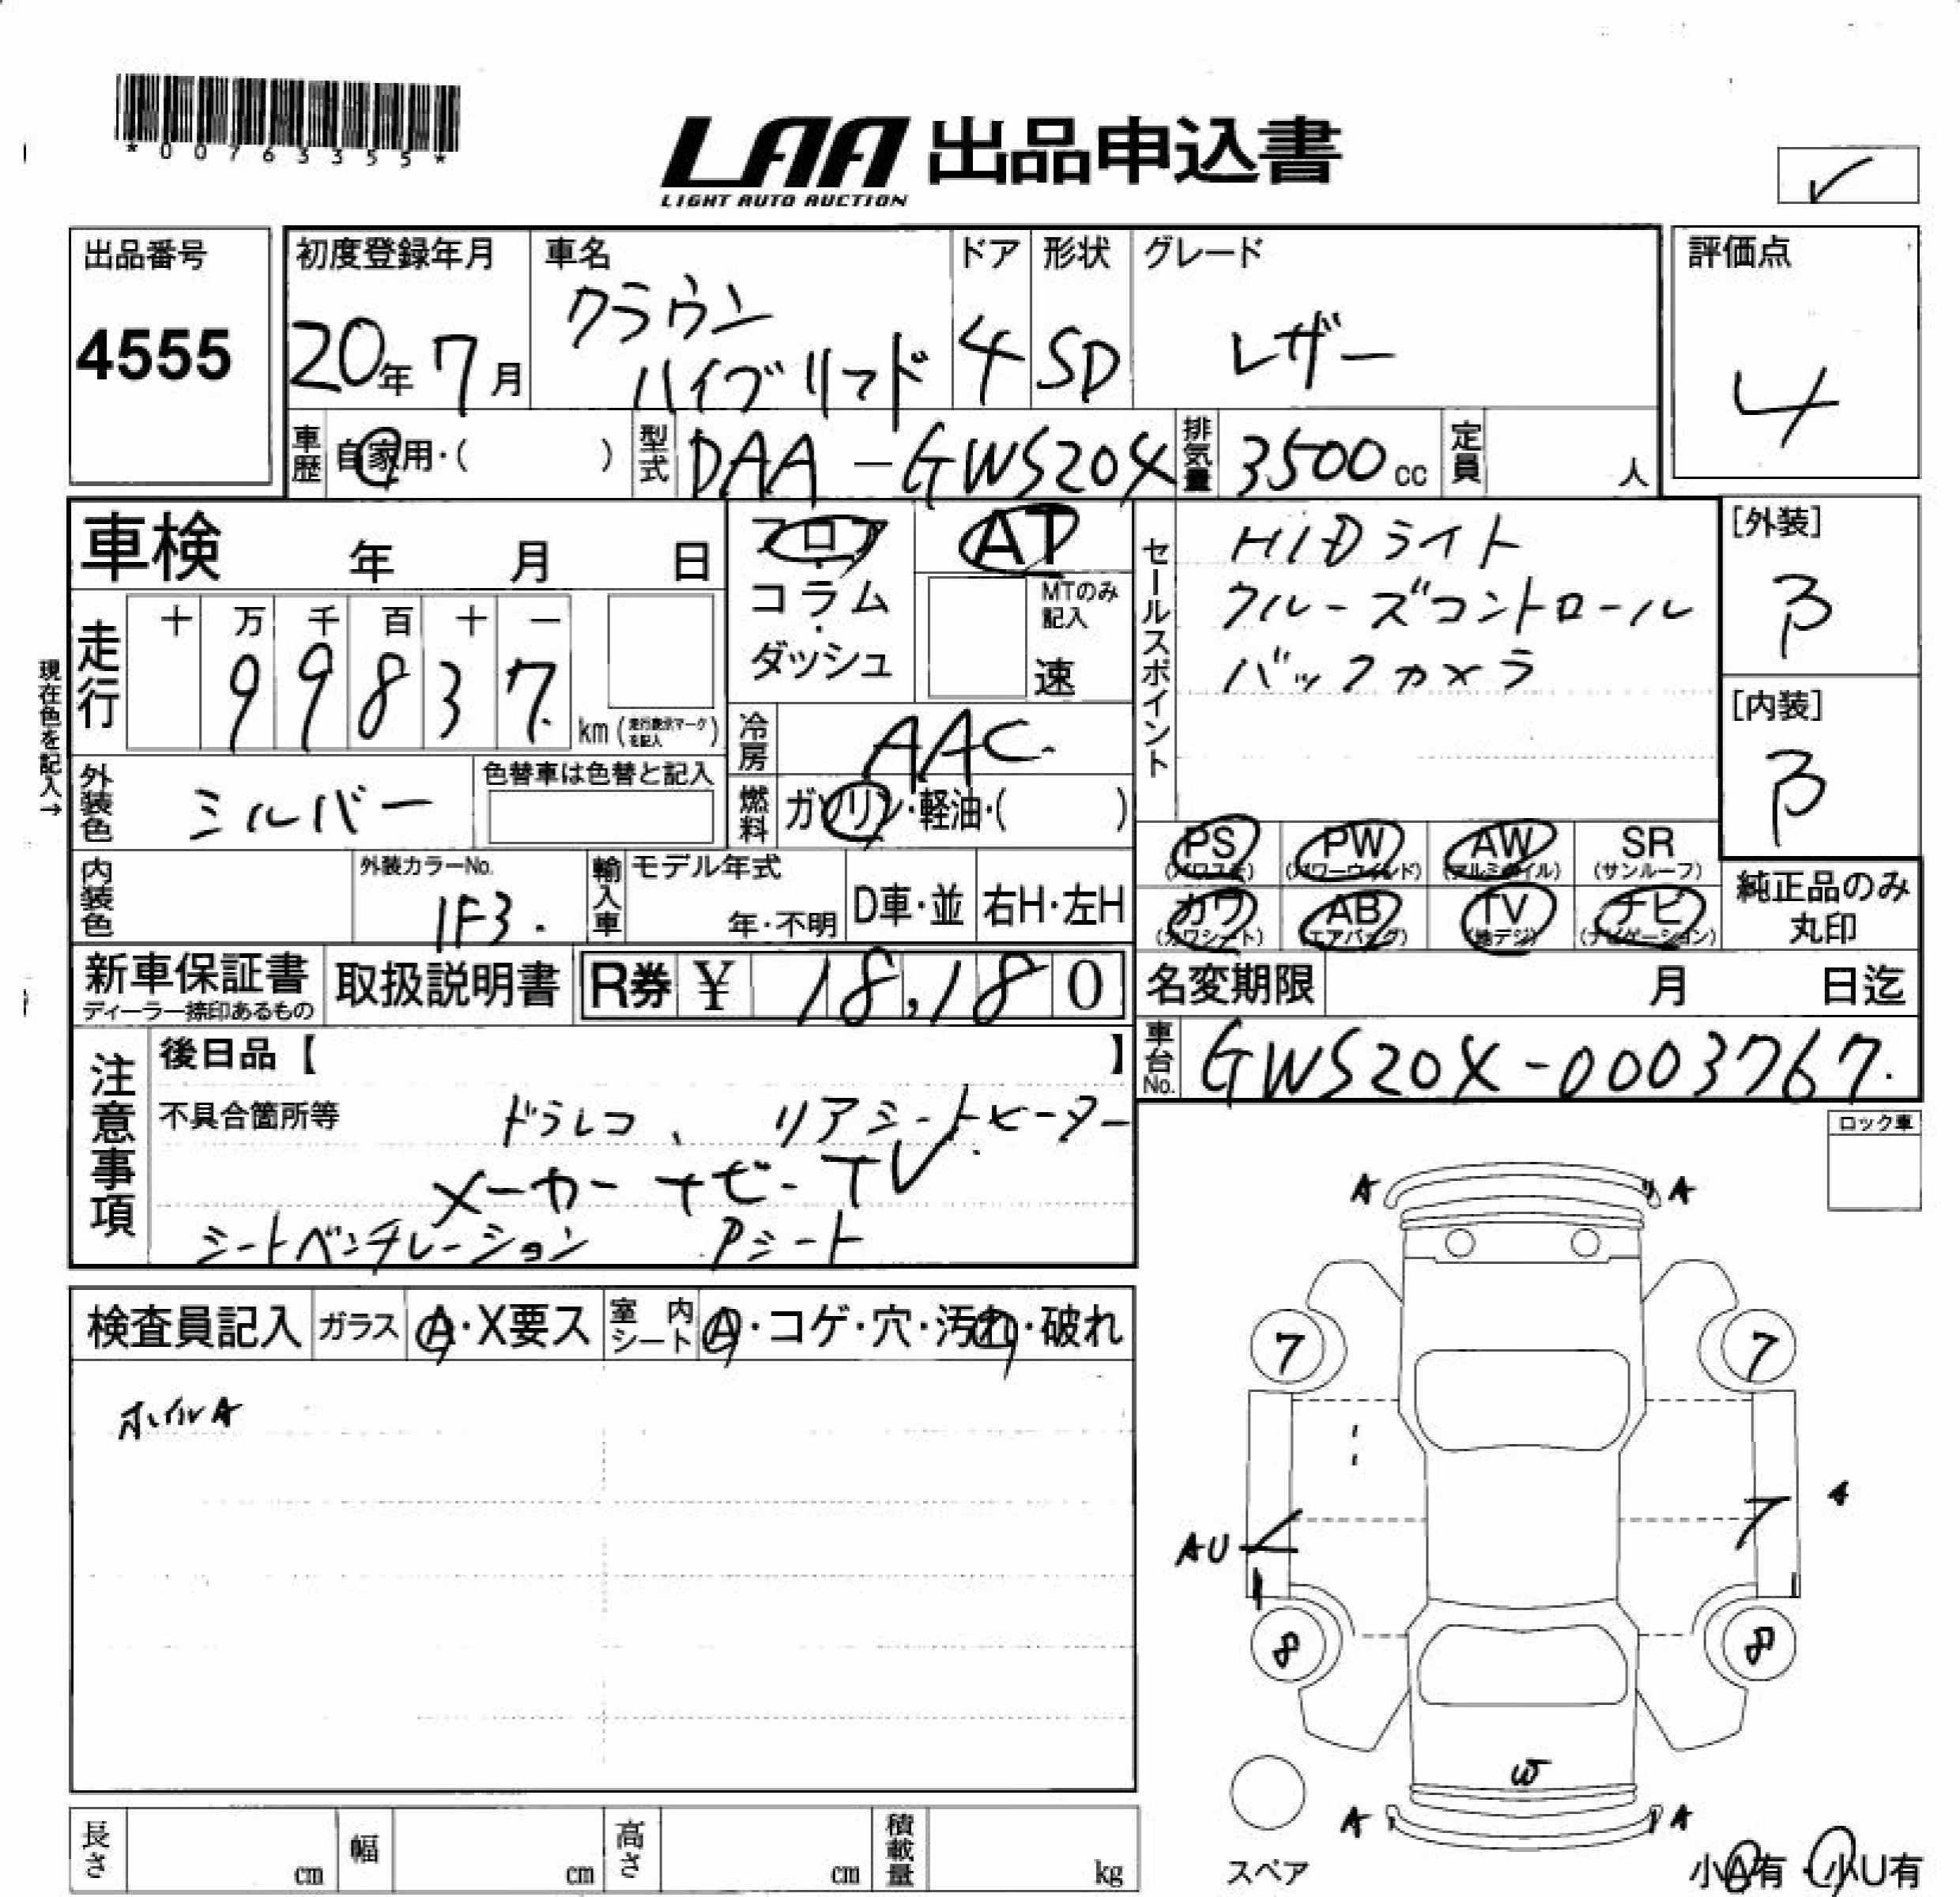 *00763355*
LAA 出品申込書
LIGHT AUTO AUCTION
出品番号
4555
初度登録年月
20年 7月
車名
クラウン
ハイブリッド
ドア
4
形状
SD
グレード
レザー
評価点
4
車歴 自家用・( )
型式 DAA-GWS204
排気量 3500cc
定員 人
車検 年 月 日
フロア
コラム
・
ダッシュ
AT
MTのみ
記入
速
現在色を記入→
走行
十 万 千 百 十 一
9 9 8 3 7
km (走行表示マークを記入)
冷房 AAC
燃料 ガソリン・軽油・( )
外装色 シルバー
色替車は色替と記入
内装色
外装カラーNo.
1F3.
輸入車
モデル年式
年・不明
D車・並
右H・左H
セールスポイント
HIDライト
クルーズコントロール
バックカメラ
[外装]
B
[内装]
B
PS (パワステ)
PW (パワーウィンド)
AW (アルミホイル)
SR (サンルーフ)
カワ (カワシート)
AB (エアバッグ)
TV (地デジ)
ナビ (ナビゲーション)
純正品のみ
丸印
新車保証書
ディーラー捺印あるもの
取扱説明書
R券 ¥ 18,180
名変期限 月 日迄
車台No. GWS204-0003767.
注意事項
後日品【 】
不具合箇所等
ドラレコ、 リアシートヒーター
メーカーナビ-TV
シートベンチレーション Pシート
ロック車
検査員記入
ガラス A・X要ス
室内シート A・コゲ・穴・汚れ・破れ
ホイルA
A A
7 7
AU
A
8 8
W
A A
スペア
小A有・小U有
長さ cm
幅 cm
高さ cm
積載量 kg